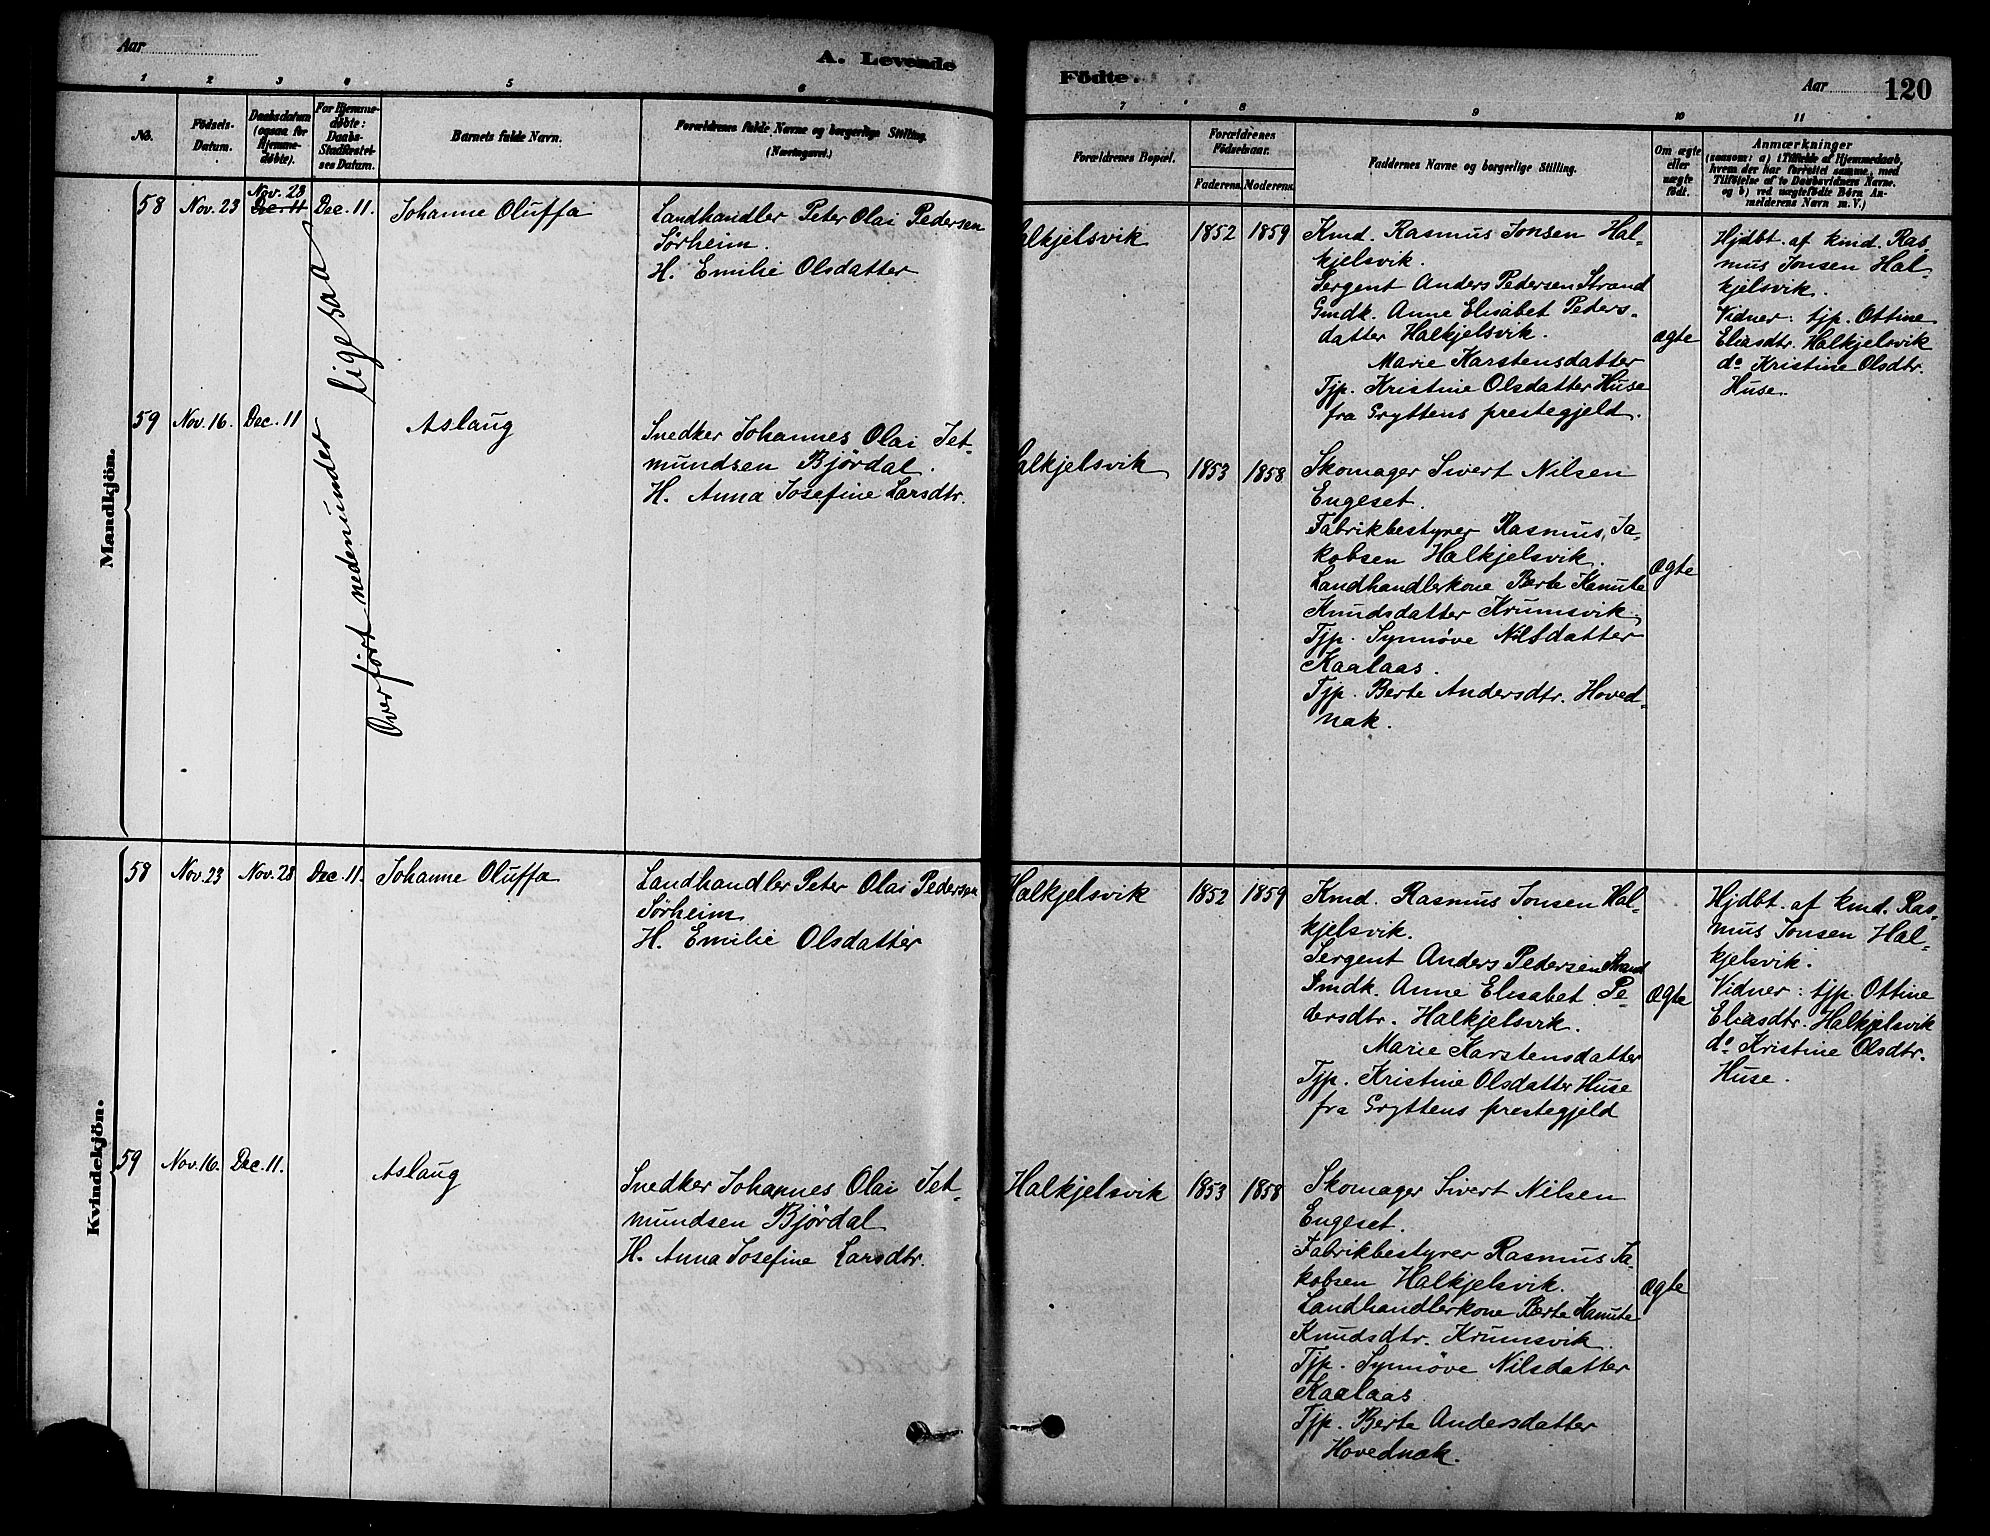 Aar
A. Levende
Födte.
Aar
120
1
2
3
4
5
6
7
8
9
10
11
No.
Födsels-
Datum.
Daabsdatum
(ogsaa for
Hjemme-
døbte).
For Hjemme-
døbte:
Daabs-
Stadfæstel-
ses Datum.
Barnets fulde Navn.
Forældrenes fulde Navne og borgerlige Stilling.
(Næringsvei.)
Forældrenes Bopæl.
Forældrenes
Födselsaar.
Faderens.
Moderens.
Faddernes Navne og borgerlige Stilling.
Om ægte
eller
uægte
födt.
Anmærkninger
(saasom: a) i Tilfælde af Hjemmedaab,
hvem der har forrettet samme, med
Tilföielse af to Daabsvidners Navne.
og b) ved uægtefödte Börn An-
melderens Navn m. V.)
Mandkjön.
58
Nov. 23
Nov. 28
Dec. 11
Dec. 11.
Johanne Oluffa
Landhandler Peter Olai Pedersen
Sörheim.
H. Emilie Olsdatter
alkjelsvik
1852
1859
Kmd. Rasmus Jonsen Hal-
kjelsvik.
Sergent Anders Pedersen Strand
Gmdk. Anne Elisabet Peders-
datter Halkjelsvik.
Marie Karstensdatter
Tjp. Kristine Olsdatter Huse
fra Gryttens prestegjeld.
ægte
Hjdbt. af kmd. Ras-
mus Jonsen Hal-
kjelsvik.
Vidner: tjp. Ottine
Eliasdtr. Halkjelsvik
do Kristine Olsdtr.
Huse.
Overført nedenunder ligesaa
59
Nov. 16.
Dec. 11
Aslaug
Snedker Johannes Olai Jet-
mundsen Björdal.
H. Anna Josefine Larsdtr.
alkjelsvik
1853
1858
Skomager Sivert Nilsen
Engeset.
Fabrikbestyrer Rasmus Ja-
kobsen Halkjelsvik.
Landhandlerkone Berte Kanute
Knudsdatter Krumsvik.
Tjp. Synnöve Nilsdatter
Kaalaas.
Tjp. Berte Andersdtr. Hoved-
nak.
ægte
Kvindekjön.
58
Nov. 23
Nov. 28
Dec. 11.
Johanne Oluffa
Landhandler Peter Olai Pedersen
Sörheim
H. Emilie Olsdatter
Halkjelsvik
1852
1859
Kmd. Rasmus Jonsen Hal-
kjelsvik.
Sergent Anders Pedersen Strand
Gmdk. Anne Elisabet Pe-
dersdtr. Halkjelsvik.
Marie Karstensdatter
Tjp. Kristine Olsdatter Huse
fra Gryttens prestegjeld
ægte
Hjdbt. af kmd. Ras-
mus Jonsen Hal-
kjelsvik.
Vidner: tjp. Ottine
Eliasdtr. Halkjelsvik
do Kristine Olsdtr.
Huse.
59
Nov. 16.
Dec. 11.
Aslaug
Snedker Johannes Olai Jet-
mundsen Björdal
H. Anna Josefine Larsdtr.
Halkjelsvik
1853
1858
Skomager Sivert Nilsen
Engeset.
Fabrikbestyrer Rasmus Ja-
kobsen Halkjelsvik.
Landhandlerkone Berte Kanute
Knudsdtr. Krumsvik.
Tjp. Synnöve Nilsdatter
Kaalaas
Tjp. Berte Andersdatter
Hovednak.
ægte